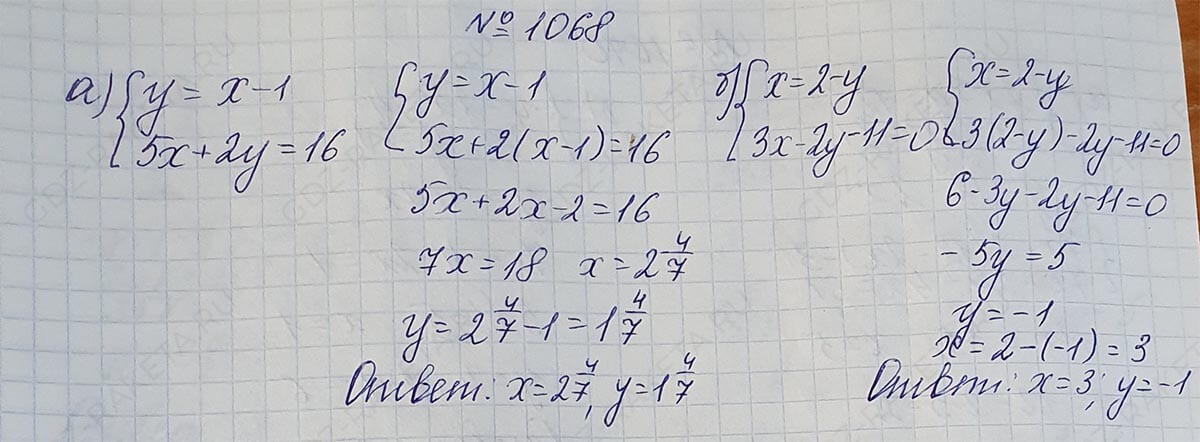 № 1068
а) { y = x - 1
5x + 2y = 16
{ y = x - 1
5x + 2(x - 1) = 16
5x + 2x - 2 = 16
7x = 18 x = 2 4/7
y = 2 4/7 - 1 = 1 4/7
Ответ: x = 2 4/7, y = 1 4/7
б) { x = 2 - y
3x - 2y - 11 = 0
{ x = 2 - y
3(2 - y) - 2y - 11 = 0
6 - 3y - 2y - 11 = 0
- 5y = 5
y = -1
x = 2 - (-1) = 3
Ответ: x = 3; y = -1